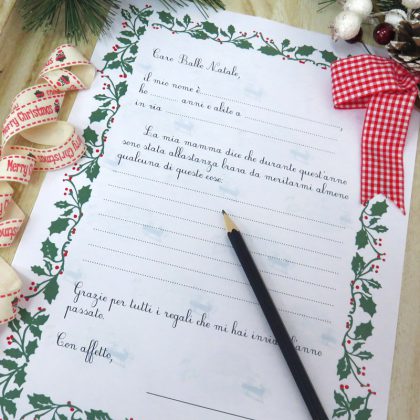 Caro Babbo Natale,
il mio nome è
ho anni e abito a ,
in via
La mia mamma dice che durante quest'anno
sono stata abbastanza brava da meritarmi almeno
qualcuna di queste cose
Grazie per tutti i regali che mi hai l'anno
passato.
Con affetto,
Merry Christmas
Merry Christmas